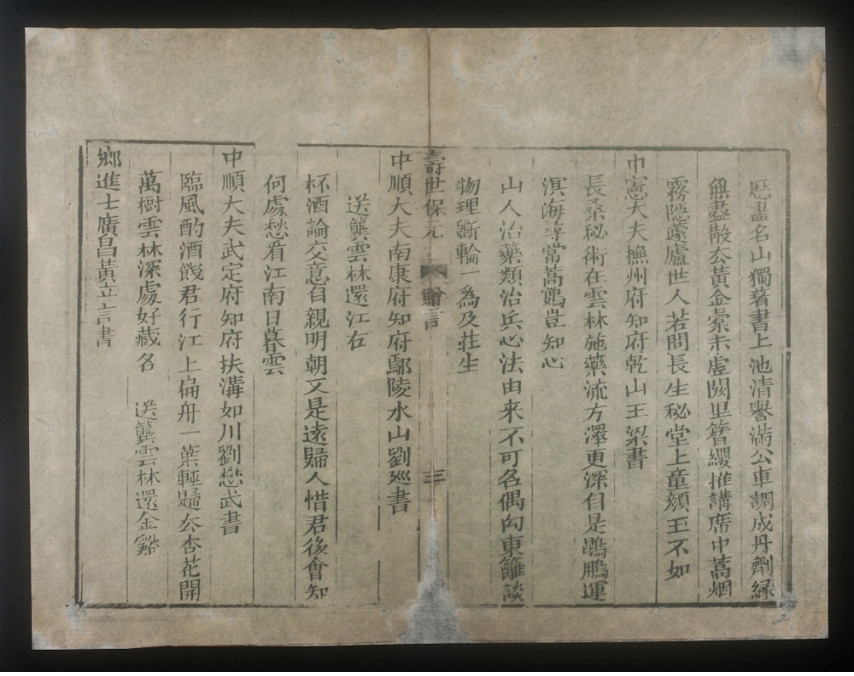 歷盡名山獨著書上池清譽滿公車調成丹劑緑
無盡散去黃金橐未虛闕里簪纓推講席中嵩烟
霧隱蘧廬世人若問長生秘堂上童顏玉不如
中憲大夫撫州府知府乾山王梁書
長桑秘術在雲林施藥流方澤更深自是鵾鵬運
溟海尋常蒿鷃豈知心
山人治藥類治兵心法由来不可名偶向東籬談
物理斲輪一為及莊生
壽世保元 贈言 三
中順大夫南康府知府鄢陵水山劉廵書
送龔雲林還江右
杯酒論交意自親明朝又是遠歸人惜君後會知
何處愁看江南日暮雲
中順大夫武定府知府扶溝如川劉懋武書
臨風酌酒餞君行江上偏舟一葉輕歸去杏花開
萬樹雲林深處好藏名 送龔雲林還金谿
鄉進士廣昌黃立言書